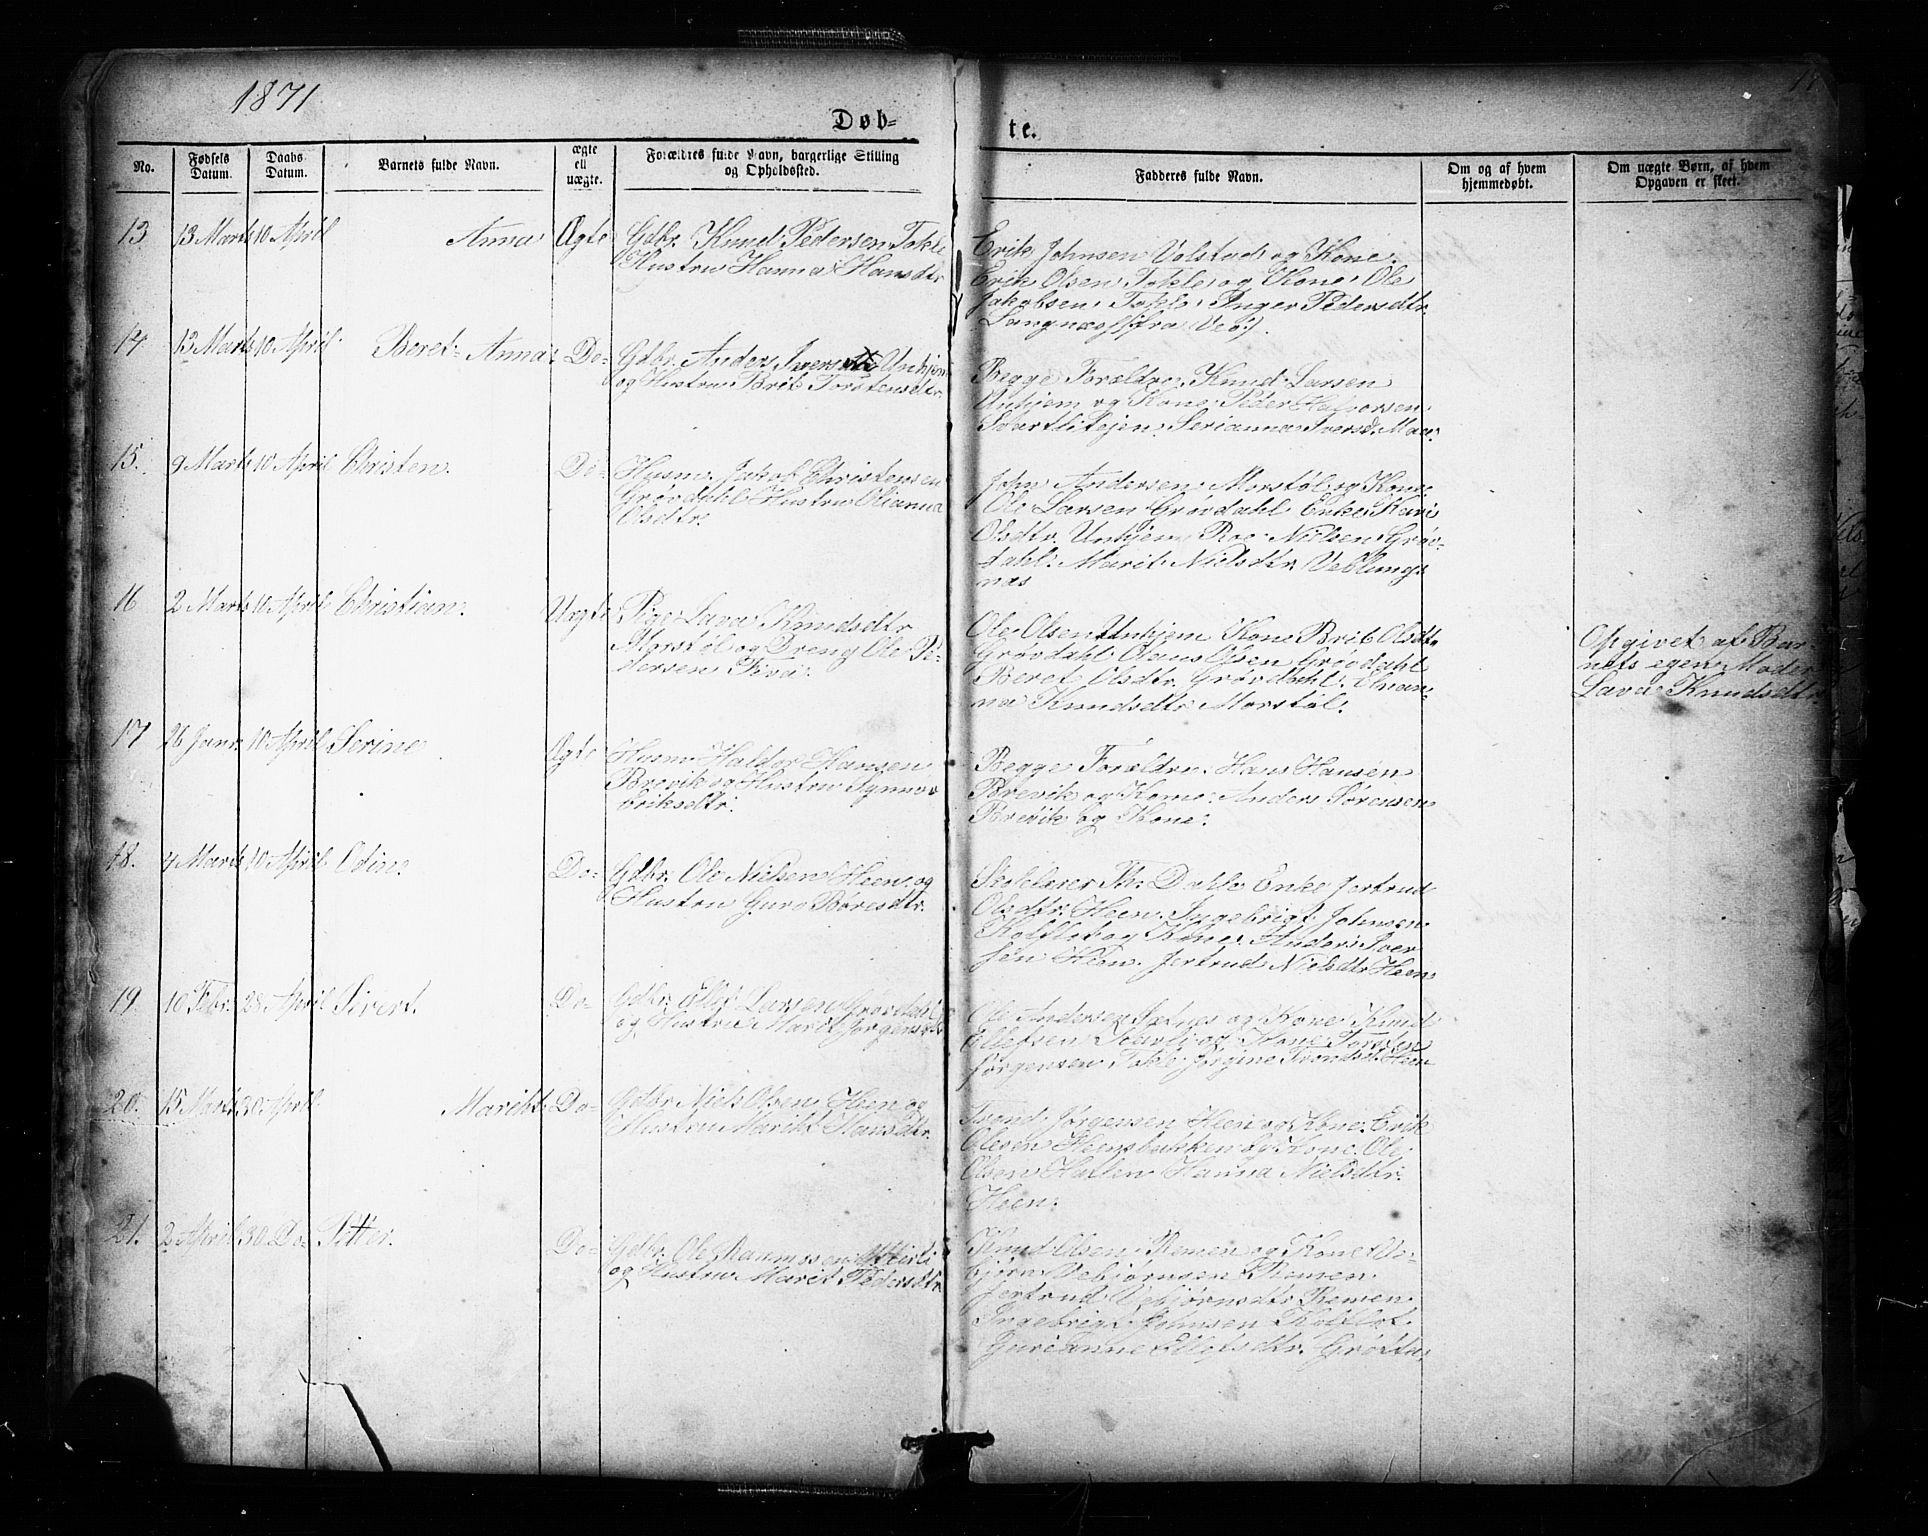 1871
17
Døb-
te.
No.
Fødsels Datum.
Daabs Datum.
Barnets fulde Navn.
ægte ell uægte.
Forældres fulde Navn, borgerlige Stilling og Opholdssted.
Fadderes fulde Navn.
Om og af hvem hjemmedøbt.
Om uægte Børn, af hvem Opgaven er skeet.
13 13 Marts 10 April Anna Ægte Gdbr. Knud Pedersen Tokle
Hustru Hanna Hansdtr
Erik Johnsen Volstad og Kone.
Erik Olsen Tokle og Kone. Ole
Jakobsen Tokle. Inger Pedersdtr
Langnæs (fra Veø).
14 13 Marts 10 April Beret Anna Do- Gdbr. Anders Iversen Unhjem
og Hustru Brit Torstensdtr.
Begge Forældre. Knud Larsen
Unhjem og Kone. Peder Halvorsen
Iversd.
15. 9 Marts 10 April Christen. Do- Husm. Jakob Christensen
Grøvdahl Hustru Olianna
Olsdtr.
John Andersen Morstøl og Kone.
Ole Larsen Grøvdahl Enke Kari
Olsdtr. Unhjem. Roe Nielsen Grøv-
dahl. Marit Nielsdtr. Veblungs-
næs
16 2 Marts 10 April Christian. Uægte Pige Lava Knudsdtr
Morstøl og Dreng Ole Pe-
dersen Fiva.
Ole Olsen Unhjem Kone Brit Olsdtr
Grøvdahl Claus Olsen Grøvdahl
Beret Olsdtr. Grøvdahl.
Knudsdtr Morstøl.
Opgivet af Bar-
nets egen Moder
Lava Knudsdtr.
17 26 Janr. 10 April Serine Ægte Husm Haldor Hansen
Brevik og Hustru Synnøv
Eriksdtr.
Begge Forældre. Hans Hansen
Brevik og Kone. Anders Sørensen
Brevik og Kone.
18. 4 Marts 10 April Odin. Do- Gdbr. Ole Nielsen Heen og
Hustru Guro Børesdtr.
Skolelærer Th. Dahle Enke Jertrud
Olsdtr. Heen. Ingebrigt Johnsen
Kolflot og Kone. Anders Iver
sen Heen. Jertrud Nielsdtr Heen
19 10 Febr. 28 April Sivert. Do- Gdbr. Ellef Larsen Grøvdahl
og Hustru Marit Jørgensdtr
Ole Andersen Sætnes og Kone Knud
Ellefsen og Kone Torsten
Jørgensen Tokle. Jørgine Trondsd. Heen
20. 15 Marts 30 April Marikt Do- Gdbr. Niels Olsen Heen og
Hustru Marikt Hansdtr.
Trond Jørgensen Heen og Kone. Erik
Olesen Heensbakken og Kone. Ole
Olsen Hallen Hanna Nielsdtr.
Heen.
21. 2 April 30 Do- Petter. Do- Gdbr. Ole Rasmussen
og Hustru Marit Pedersdtr
Knud Olsen Remen og Kone Ve-
bjørn Vebjørnsen Remen.
Jertrud Vebjørnsdtr Remen
Ingebrigt Johnsen Kolflot.
Guri Anne Ellefsdtr.